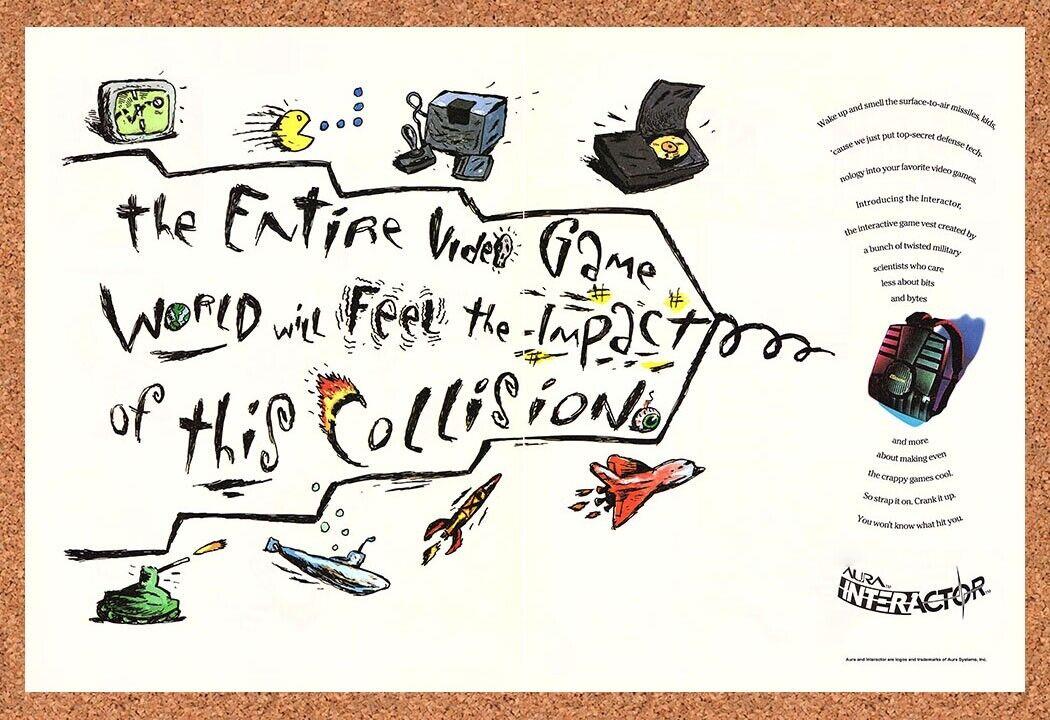 the ENTiRE VidEO GAME
WORLD will FEEL the ImPACT
of this COLLISION.
Wake up and smell the surface-to-air missiles, kids,
'cause we just put top-secret defense tech-
nology into your favorite video games.
Introducing the Interactor,
the interactive game vest created by
a bunch of twisted military
scientists who care
less about bits
and bytes
and more
about making even
the crappy games cool.
So strap it on. Crank it up.
You won't know what hit you.
AURA™
INTERACTOR™
Aura and Interactor are logos and trademarks of Aura Systems, Inc.